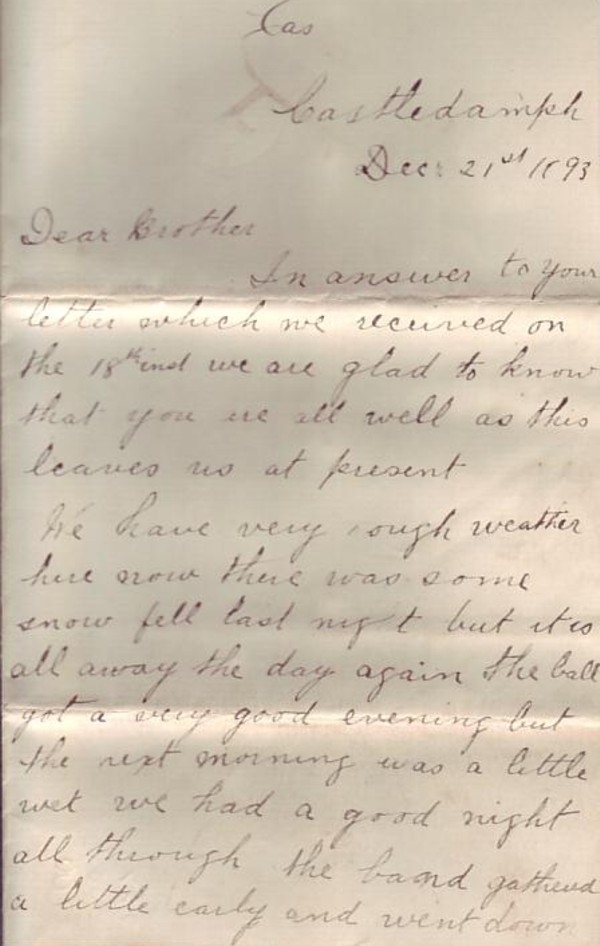 Cas
Castledamph
Decr 21st 1893
Dear Brother
In answer to your
letter which we received on
the 18th inst we are glad to know
that you are all well as this
leaves us at present
We have very rough weather
here now there was some
snow fell last night but it is
all away the day again the ball
got a very good evening but
the next morning was a little
wet we had a good night
all through the band gathered
a little early and went down